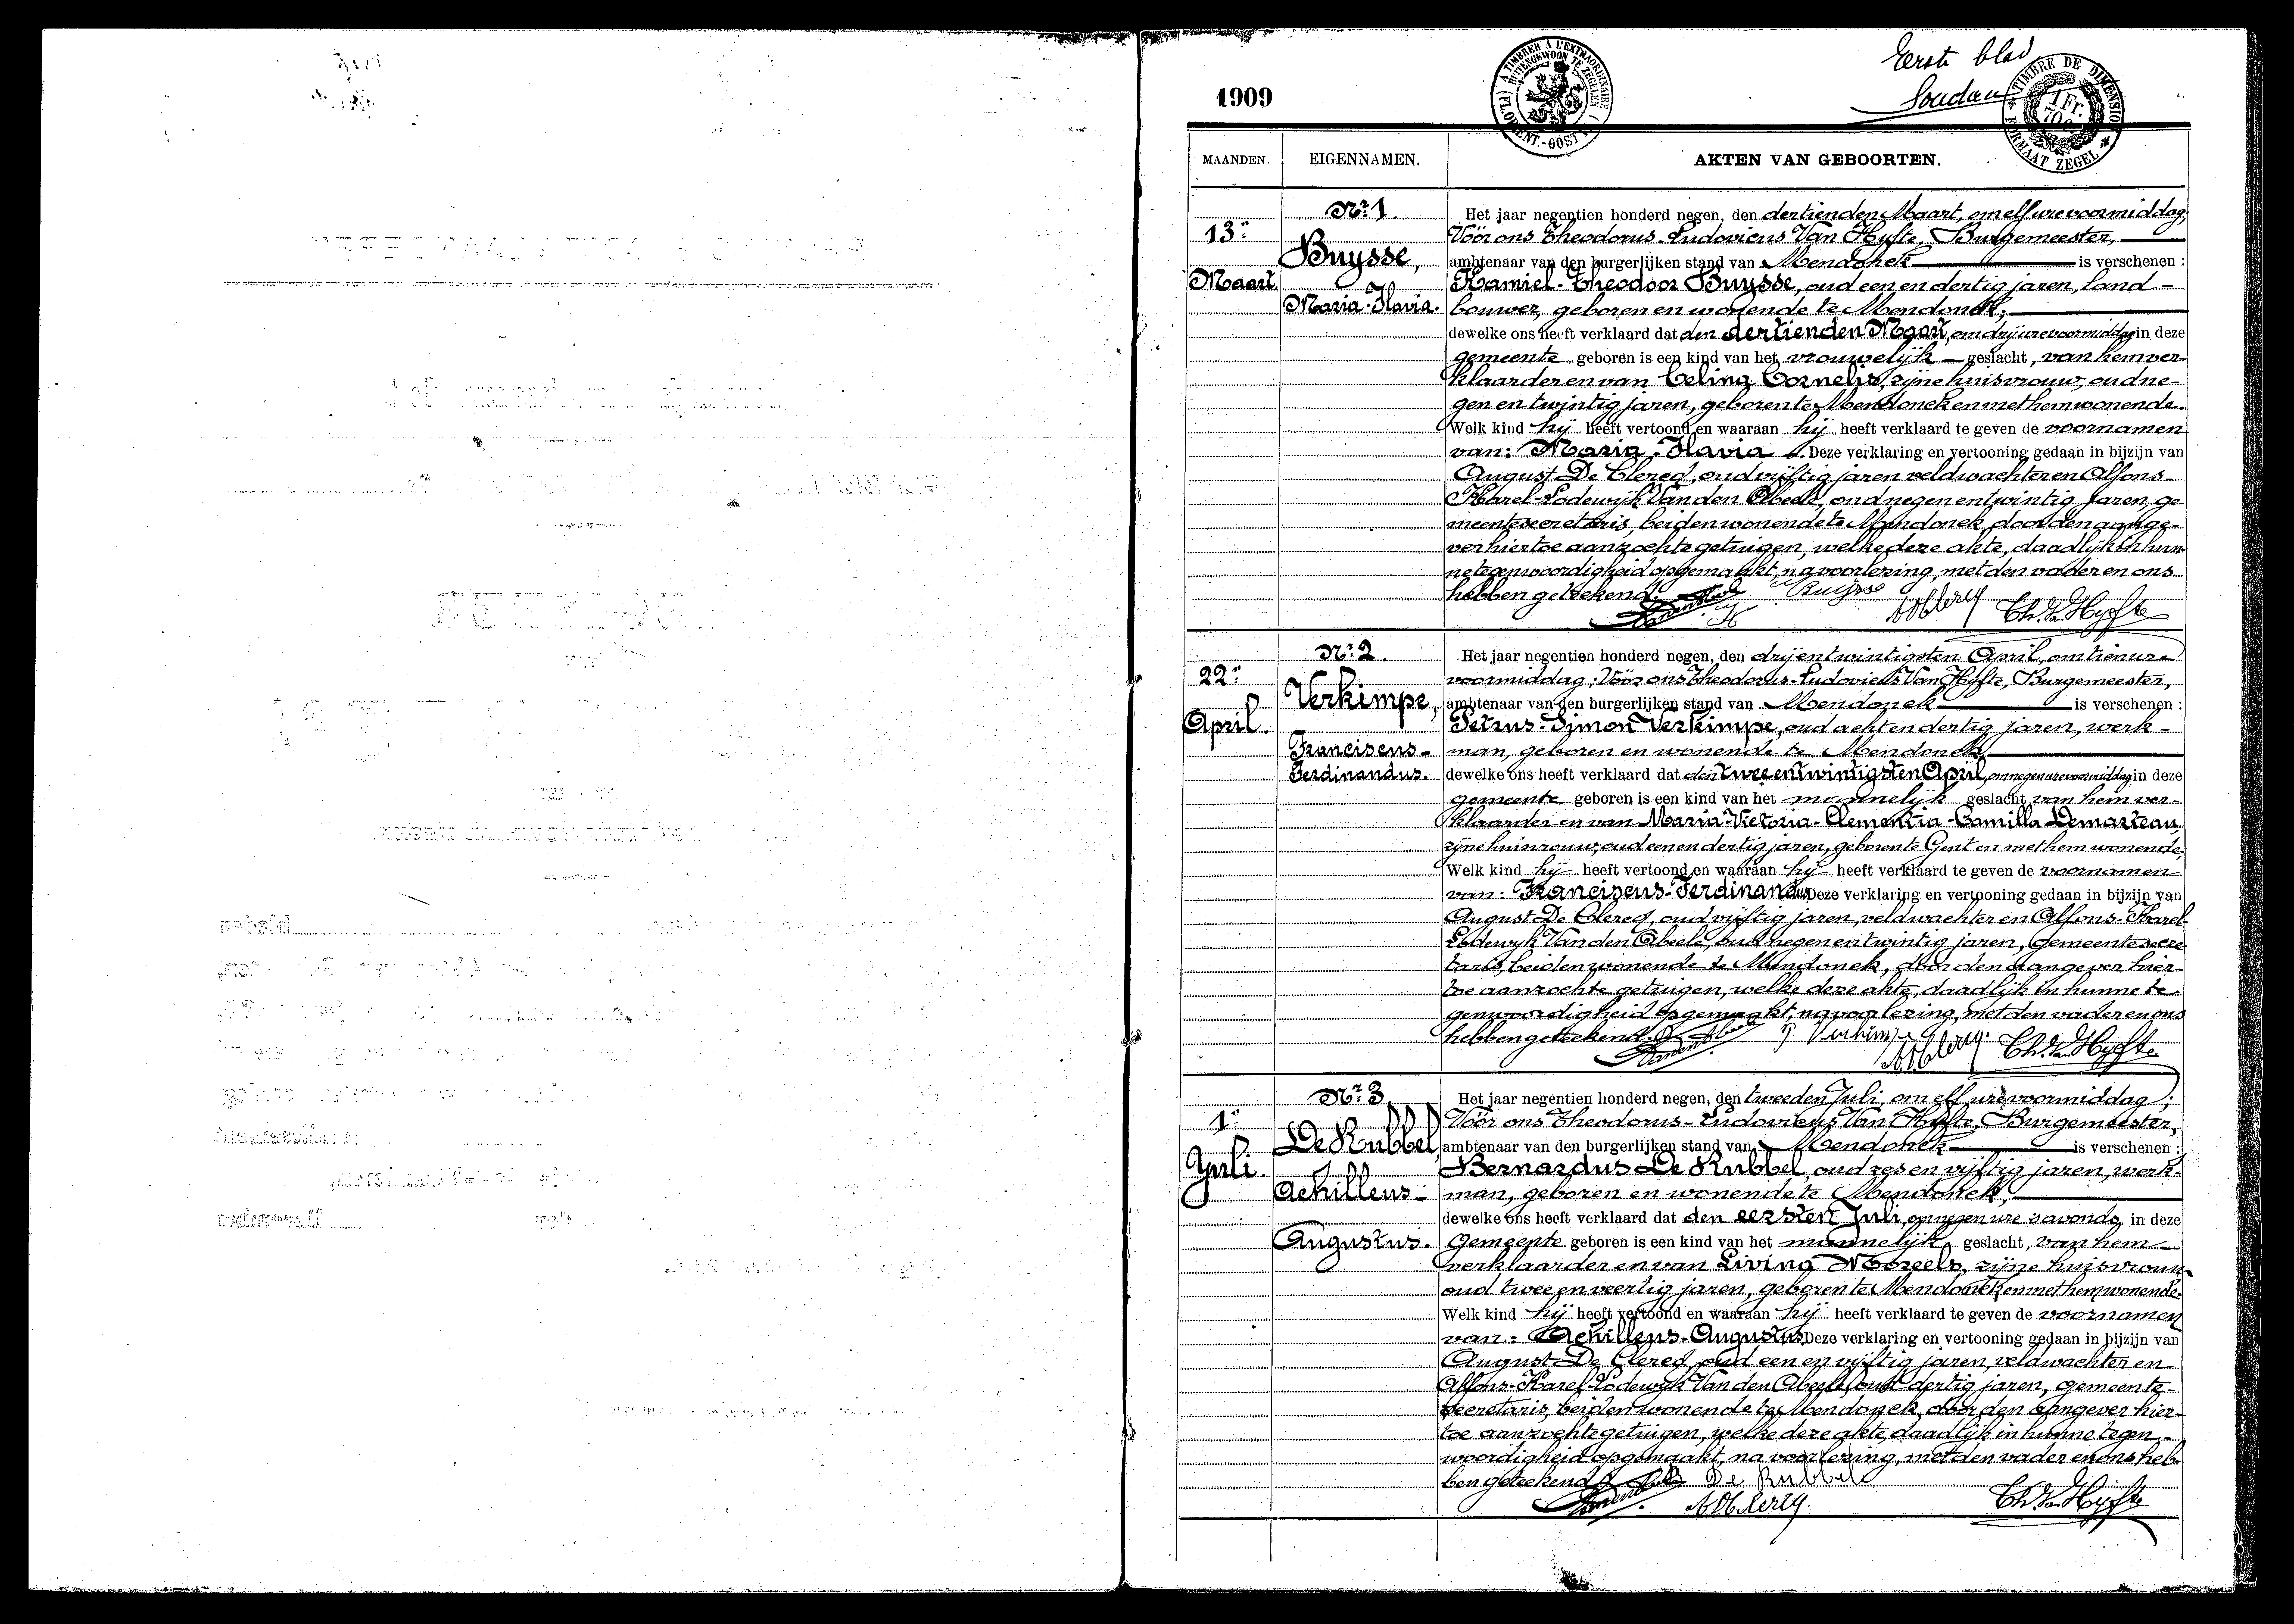 Eerste blad
Soudan
1909
A TIMBRER À L'EXTRAORDINAIRE
BUITENGEWOON TE ZEGELEN
(FL. ORIENT.-OOST VL.)
TIMBRE DE DIMENSION
1 Fr. 70 c.
FORMAAT ZEGEL
MAANDEN. EIGENNAMEN. AKTEN VAN GEBOORTEN.
Nr 1.
13n
Maart
Buysse,
Maria-Flavia.
Het jaar negentien honderd negen, den dertienden Maart, om elf ure voormiddag,
Vóór ons Theodorus-Ludovicus Van Hyfte, Burgemeester,
ambtenaar van den burgerlijken stand van Mendonck is verschenen :
Kamiel-Theodoor Buysse, oud een en dertig jaren, land-
bouwer, geboren en wonende te Mendonck,
dewelke ons heeft verklaard dat den dertienden Maart, om drij ure voormiddag in deze
gemeente geboren is een kind van het vrouwelijk geslacht, van hem ver-
klaarder en van Celina Cornelis, zijne huisvrouw, oud ne-
gen en twintig jaren, geboren te Mendonck en met hem wonende.
Welk kind hij heeft vertoond en waaraan hij heeft verklaard te geven de voornamen
van: Maria-Flavia. Deze verklaring en vertooning gedaan in bijzijn van
August De Clercq, oud vijftig jaren veldwachter en Alfons-
Karel-Lodewijk Van den Abeele, oud negen en twintig jaren, ge-
meentesecretaris, beiden wonende te Mendonck, door den aange-
ver hiertoe aanzochte getuigen, welke deze akte, daadlijk in hun-
ne tegenwoordigheid opgemaakt, na voorlezing, met den vader en ons
hebben geteekend.
Buijsse
A De Clercq
Th. Van Hyfte
Nr 2.
22n
April.
Verkimpe,
Franciscus-
Ferdinandus.
Het jaar negentien honderd negen, den drij en twintigsten April, om tien ure
voormiddag; Vóór ons Theodorus-Ludovicus Van Hyfte, Burgemeester,
ambtenaar van den burgerlijken stand van Mendonck is verschenen :
Petrus-Simon Verkimpe, oud acht en dertig jaren, werk-
man, geboren en wonende te Mendonck,
dewelke ons heeft verklaard dat den twee en twintigsten April, om negen ure voormiddag in deze
gemeente geboren is een kind van het mannelijk geslacht, van hem ver-
klaarder en van Maria-Victoria-Clementia-Camilla Demarteau,
zijne huisvrouw, oud een en dertig jaren, geboren te Gent en met hem wonende,
Welk kind hij heeft vertoond en waaraan hij heeft verklaard te geven de voornamen
van: Franciscus-Ferdinandus. Deze verklaring en vertooning gedaan in bijzijn van
August De Clercq, oud vijftig jaren, veldwachter en Alfons-Karel-
Lodewijk Van den Abeele, oud negen en twintig jaren, gemeentesecre-
taris, beiden wonende te Mendonck, door den aangever hier-
toe aanzochte getuigen, welke deze akte, daadlijk in hunne te-
genwoordigheid opgemaakt, na voorlezing, met den vader en ons
hebben geteekend.
P Verkimpe
A De Clercq
Th. Van Hyfte
Nr 3
1n
Juli.
De Rubbel,
Achilleus-
Augustus.
Het jaar negentien honderd negen, den tweeden Juli, om elf ure voormiddag;
Vóór ons Theodorus-Ludovicus Van Hyfte, Burgemeester,
ambtenaar van den burgerlijken stand van Mendonck is verschenen :
Bernardus De Rubbel, oud zes en vijftig jaren, werk-
man, geboren en wonende te Mendonck,
dewelke ons heeft verklaard dat den eersten Juli, op negen ure 's avonds in deze
Gemeente geboren is een kind van het mannelijk geslacht, van hem
verklaarder en van Livina Noreels, zijne huisvrouw
oud twee en veertig jaren, geboren te Mendonck en met hem wonende.
Welk kind hij heeft vertoond en waaraan hij heeft verklaard te geven de voornamen
van: Achilleus-Augustus. Deze verklaring en vertooning gedaan in bijzijn van
August De Clercq, oud een en vijftig jaren, veldwachter en
Alfons-Karel-Lodewijk Van den Abeele, oud dertig jaren, gemeente-
secretaris, beiden wonende te Mendonck, door den aangever hier-
toe aanzochte getuigen, welke deze akte, daadlijk in hunne tegen-
woordigheid opgemaakt, na voorlezing, met den vader en ons heb-
ben geteekend
De Rubbel
A De Clercq.
Th. Van Hyfte